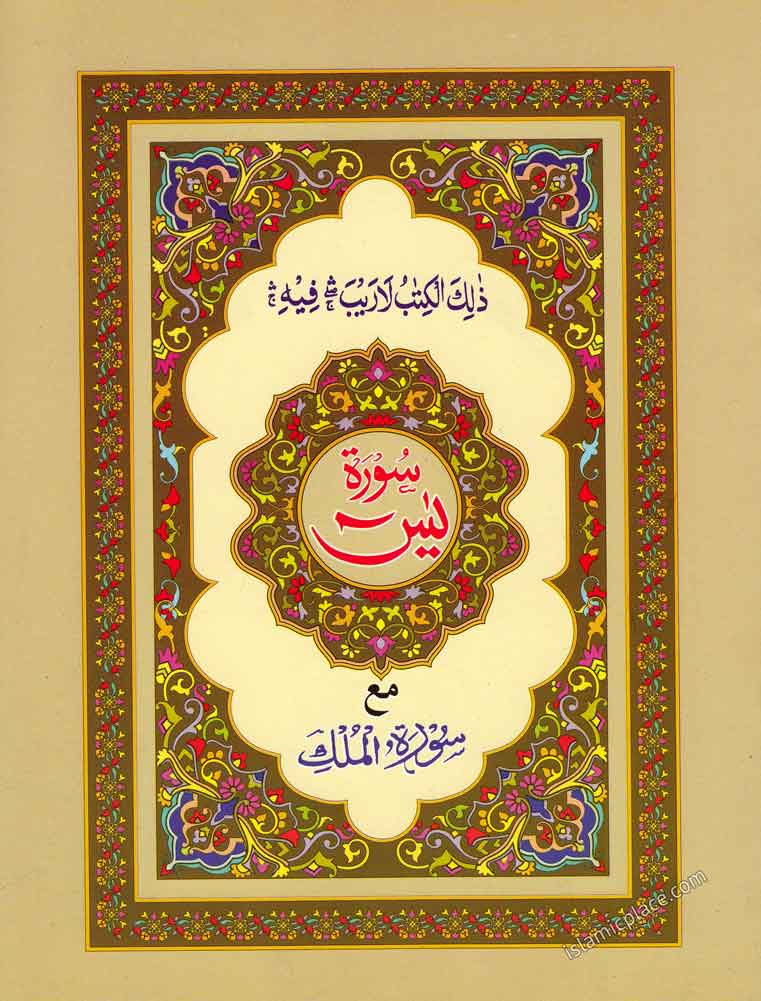 ذٰلِكَ الْكِتٰبُ لَا رَيْبَ ۛۖ فِيْهِ ۛۚ
سُوْرَة
يٰسٓ
مع
سُوْرَةُ الْمُلْكِ
islamicplace.com